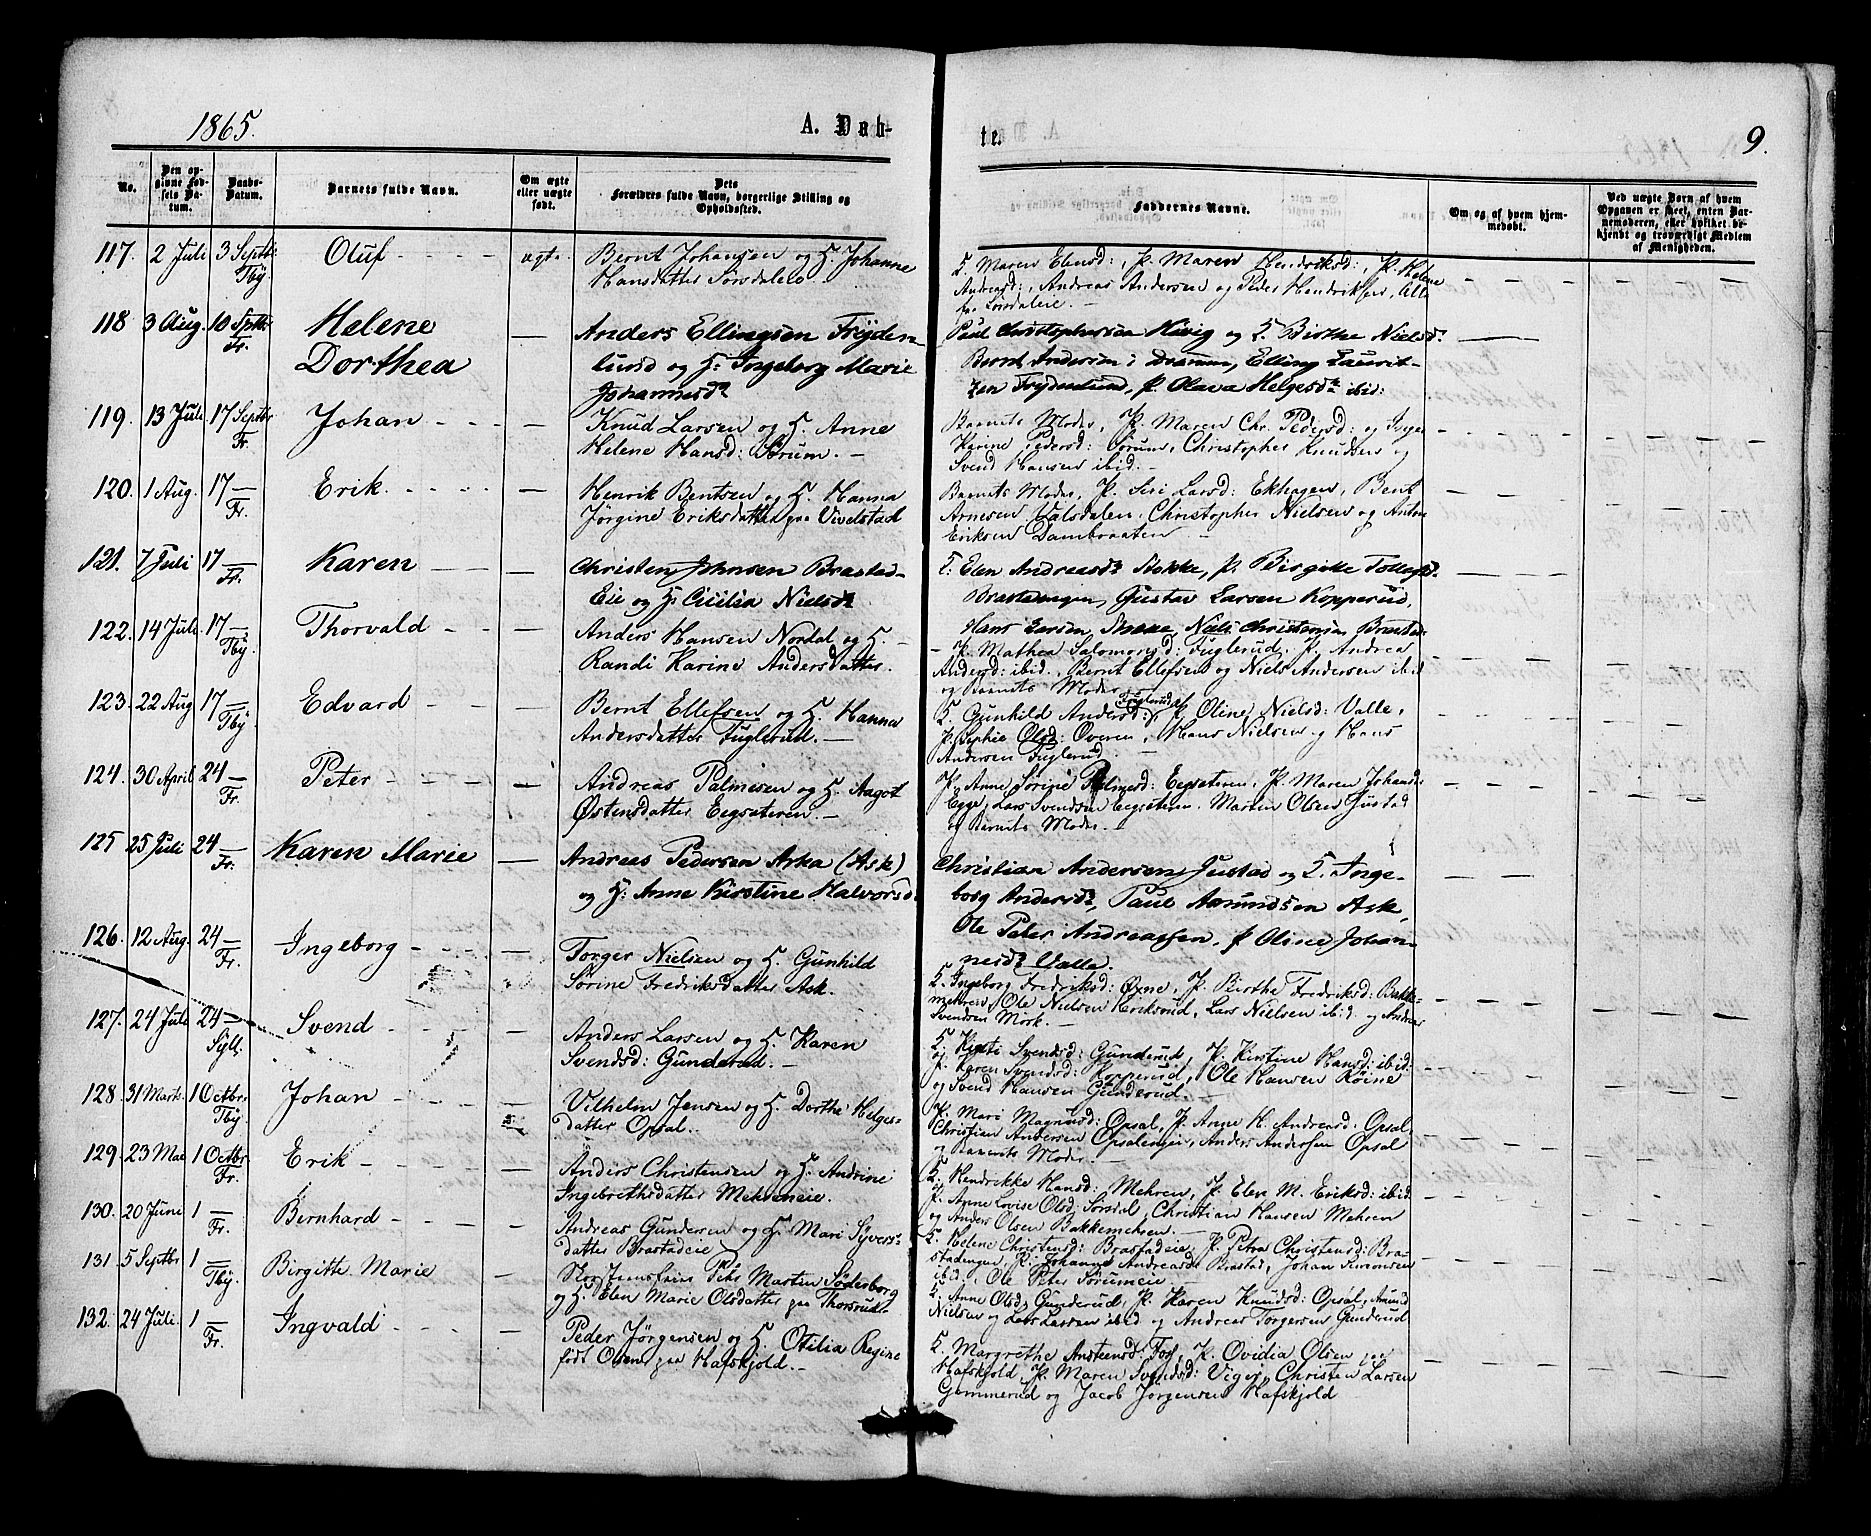 1865.
A. Døb-
te.
9.
No.
Den opgivne Fødsels Datum.
Daabs-Datum.
Barnets fulde Navn.
Om ægte eller uægte født.
Dets Forældres fulde Navn, borgerlige Stilling og Opholdssted.
Faddernes Navne.
Om og af hvem hjemmedøbt.
Ved uægte Børn af hvem Opgaven er skeet, enten Barnemoderen, eller hvilket bekjendt og troværdigt Medlem af Menigheden.
117. 2 Juli 3 Septbr Tby Oluf ægte Bernt Johansen og H. Johanne
Hansdatter Sørsdaleie.
S. Maren Elensd:, P. Maren Hendriksd:, P. Helene
Andreasd:, Andreas Andersen og Peder Hendriksen, Alle
fr. Sørsdaleie.
118 3 Aug. 10 Sptbr Fr. Helene
Dorthea
Anders Ellingsen Fryden-
lund og H: Ingeborg Marie
Johannesdr
Paul Christophersen Kisig og S. Birthe Nielsd:
Bernt Andersen i Dramn, Elling Laurit-
zen Frydenlund, P. Olava Helgesdr ibid:
119. 13 Juli 17 Septbr Fr. Johan
Knud Larsen og H. Anne
Helene Hansd: Sørum.
Barnets Moder, P. Maren Chr. Pedersd: og Inger
Karine Pedersd: Sørum, Christopher Knudsen og
Svend Hansen ibid.
120. 1 Aug. 17 Fr. Erik.
Henrik Bentsen og H. Hanna
Jørgine Eriksdatter paa Vivelstad
Barnets Moder, P. Siri Larsd: Ekhagen, Bent
Arnesen Valsdalen, Christopher Nielsen og Anton
Eriksen Dambraaten
121. 7 Juli 17 Fr. Karen
Christen Johnsen Brastad-
Eie og H: Cicilia Nielsdr
S: Elen Andreasdr Stokke, P. Birgitte Tollefsd.
Brastadengen, Gustav Larsen Kopperud,
Hans Larsen, Niels Christensen Brastad
122. 14 Juli 17 Tby. Thorvald
Anders Hansen Nordal og H.
Randi Karine Andersdatter.
P. Mathea Salomonsd: Fuglerud, P. Andrea
Andersd: ibid., Bernt Ellefsen og Niels Andersen ibid
og Barnets Moder
123. 22 Aug 17 Tby. Edvard
Bernt Ellefsen og H. Hanna
Andersdatter Fuglerud.
S. Gunhild Andersd: Fuglerud, P. Oline Nielsd: Valle,
P. Sophie Olsd: Overen, Hans Nielsen og Hans
Andersen Fuglerud
124. 30 April 24 Fr. Peter
Andreas Palmesen og H. Aagot
Østensdatter Eegsateren.
P. Anne Sorine Palmesd: Eegsateren, P. Maren Johansd:
Egge, Lars Svendsen Eegsateren. Marten Olsen Gustad
og Barnets Moder.
125 25 Juli 24 Fr. Karen Marie
Andreas Pedersen Aska (Ask)
og H: Anne Kirstine Halvorsd.
Christian Andersen Gustad og S. Inge-
borg Andersdr, Paul Amundsen Ask,
Ole Peter Andreassen, P Oline Johan-
nesdr Valle.
126. 12 Aug. 24 Fr. Ingeborg
Torger Nielsen og H. Gunhild
Sørine Fredriksdatter Ask.
S. Ingeborg Fredriksd: Øxne, P. Birthe Fredriksd: Bakke
mehren, Ole Nielsen Heriksrud, Lars Nielsen ibid. og Andreas
Svendsen Mork.
127. 24 Juli 24 Syll. Svend
Anders Larsen og H. Karen
Svendsd: Gunderud.
S. Kirsti Svendsd: Gunderud, P. Kirstine Hansd: ibid:
P. Karen Svendsd: Kopperud, Ole Hansen Röine
og Svend Hansen Gunderud.
128. 31 Marts. 1 Octbr. Tby. Johan
Vilhelm Jensen og H. Dorthe Helges-
datter Opsal.
P. Mari Magnusd: Opsal, P. Anne H. Andreasd: Opsal,
Christian Andersen Opsalengen, Anders Anderssen Opsal
og Barnets Moder.
129. 23 Mai 1 Octbr. Fr. Erik
Anders Christensen og H. Andrine
Ingebrethsdatter Mehreneie.
S. Hendrikke Hansd: Mehren, P. Elen M. Eriksd: ibid.
P. Anne Lovise Olsd: Sørsdal, Christian Hansen Mehren
og Anders Olsen Bakkemehren.
130. 20 Juni 1 Fr. Bernhard
Andreas Gundersen og H. Mari Syvers-
datter Brastadeie
S. Helene Christensd: Brastadeie, P. Petra Christensd: Bra-
stadengen, P. Johanne Andreasd: Brastad, Johan Simonsen
ibid., Ole Peter Sørumeie
131. 5 Septbr 1 Tby. Birgitte Marie
Peter Marten Söderborg
og H. Elen Marie Olsdatter paa Thorsrud.
S. Anne Olsd: Gunderud, P. Karen Knudsd: Opsal, Amund
Nielsen og Lars Larsen ibid og Andreas Torgersen Gunderud
132. 24 Juli. 1 Fr. Ingvald
Peder Jörgensen og H. Otilia Regine
født Olsen paa Hafskjold.
S. Margrethe Ansteensd: Foss, P. Ovidia Olsen paa
Hafskjold, P. Maren Svendsd: Viger, Christen Larsen
Gommerud og Jacob Jørgensen Hafskjold